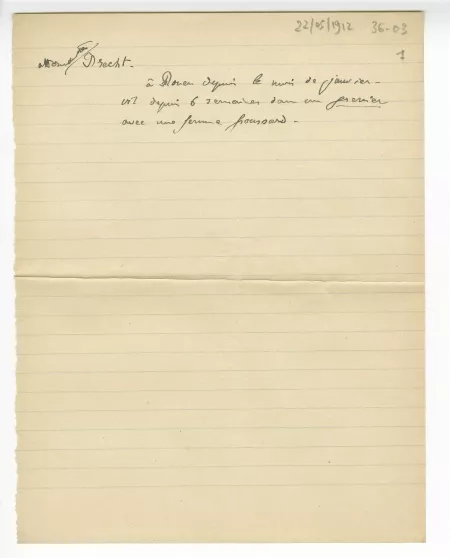 22/05/1912 36-03
1
Drecht.
à Rouen depuis le mois de janvier -
vit depuis 6 semaines dans un grenier
avec une femme Groussard -